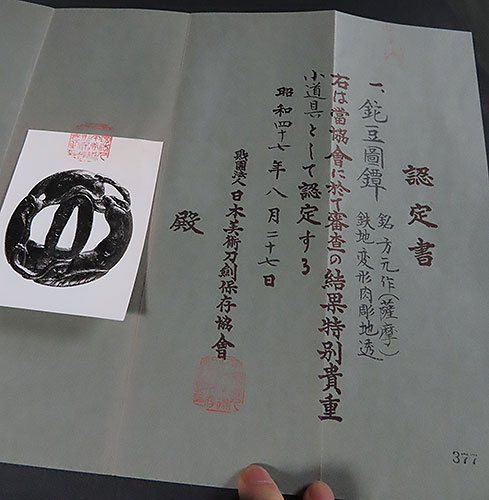 認定書
一、鉈豆圖鐔
銘 方元作(薩摩)
鉄地変形肉彫地透
右は當協會に於て審査の結果特別貴重
小道具として認定する
昭和四十七年八月二十七日
財團法人日本美術刀劍保存協會
殿
377